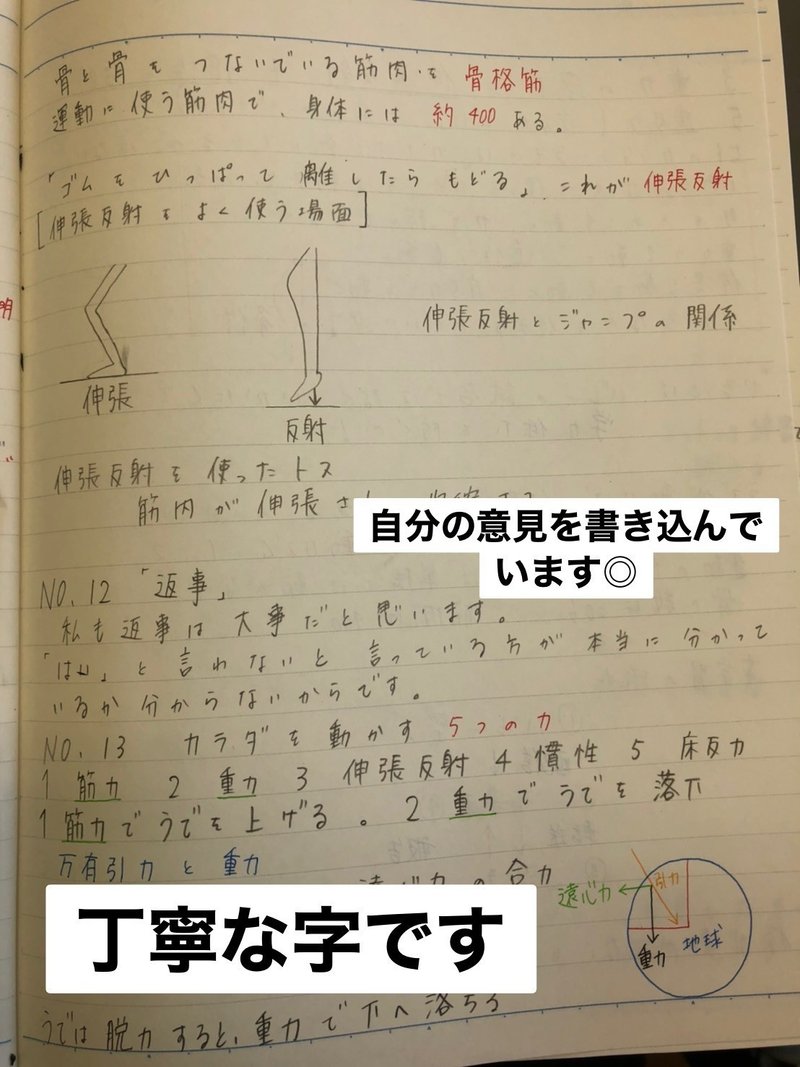 骨と骨をつないでいる筋肉を 骨格筋
運動に使う筋肉で、身体には 約400ある。
「ゴムをひっぱって離したらもどる」これが伸張反射
[伸張反射をよく使う場面]
伸張反射とジャンプの関係
伸張
反射
伸張反射を使ったトス
筋肉が伸張
自分の意見を書き込んで
います◎
NO.12「返事」
私も返事は大事だと思います。
「はい」と言わないと言っている方が本当に分かって
いるか分からないからです。
NO.13 カラダを動かす 5つの力
1 筋力 2 重力 3 伸張反射 4 慣性 5 床反力
1 筋力でうでを上げる。2 重力でうでを落下
万有引力と重力
遠心力の合力
遠心力
引力
重力
地球
丁寧な字です
うでは脱力すると、重力で下へ落ちる